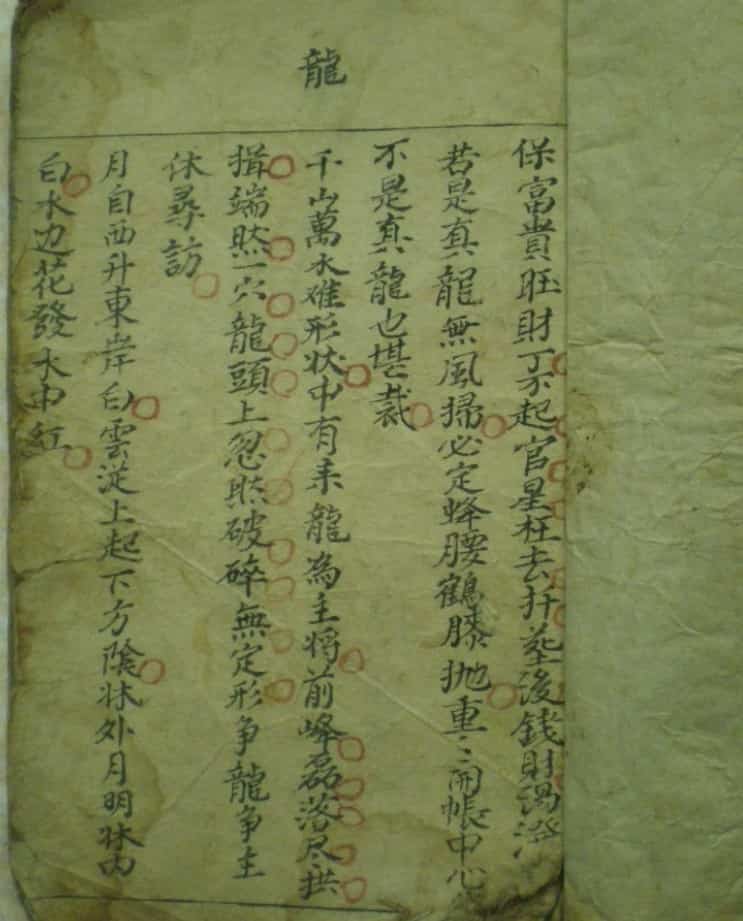 龍
保富貴旺財丁不起官星枉去扦塟後錢財
若是真龍無風掃必定蜂腰鶴膝拋重〻開帳中心
不是真龍也堪裁
千山萬水难形状中有来龍為主將前峰磊落尽拱
揖端然一穴龍頭上忽然破碎無定形争龍争主
休尋訪
月自西升東岸白雲従上起下方陰牀外月明牀內
白水边花發水中紅